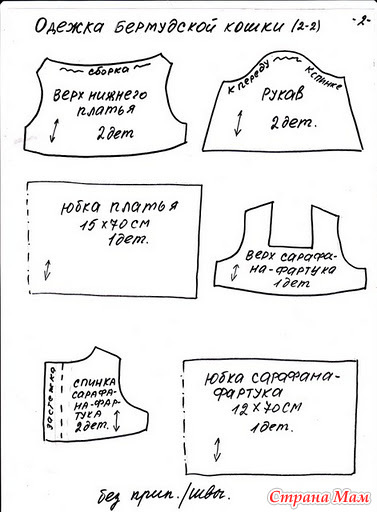 Одежка Бертудской кошки (2-2)
-2-
сборка
верх нижнего
платья
2дет
к переду
к спинке
рукав
2дет.
юбка платья
15×70см
1дет.
верх сарафа-
на-фартука
1дет
застежка
спинка
сарафа-
на-фар-
тука
2дет.
юбка сарафана-
фартука
12×70см
1дет.
без прип./швы.
Страна Мам